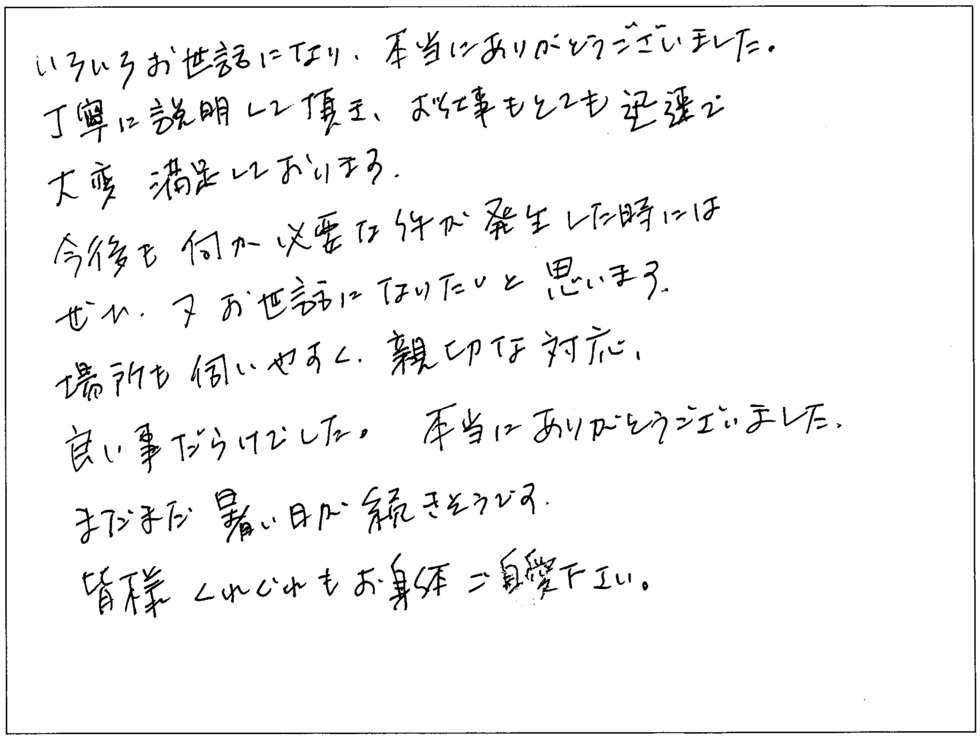 いろいろお世話になり、本当にありがとうございました。
丁寧に説明して頂き、お仕事もとても迅速で
大変 満足しております。
今後も 何か 必要な件が 発生した時には
ぜひ、又お世話になりたいと 思います。
場所も 伺いやすく、親切な 対応、
良い事だらけでした。 本当にありがとうございました。
まだまだ 暑い日が 続きそうです。
皆様 くれぐれもお身体 ご自愛下さい。